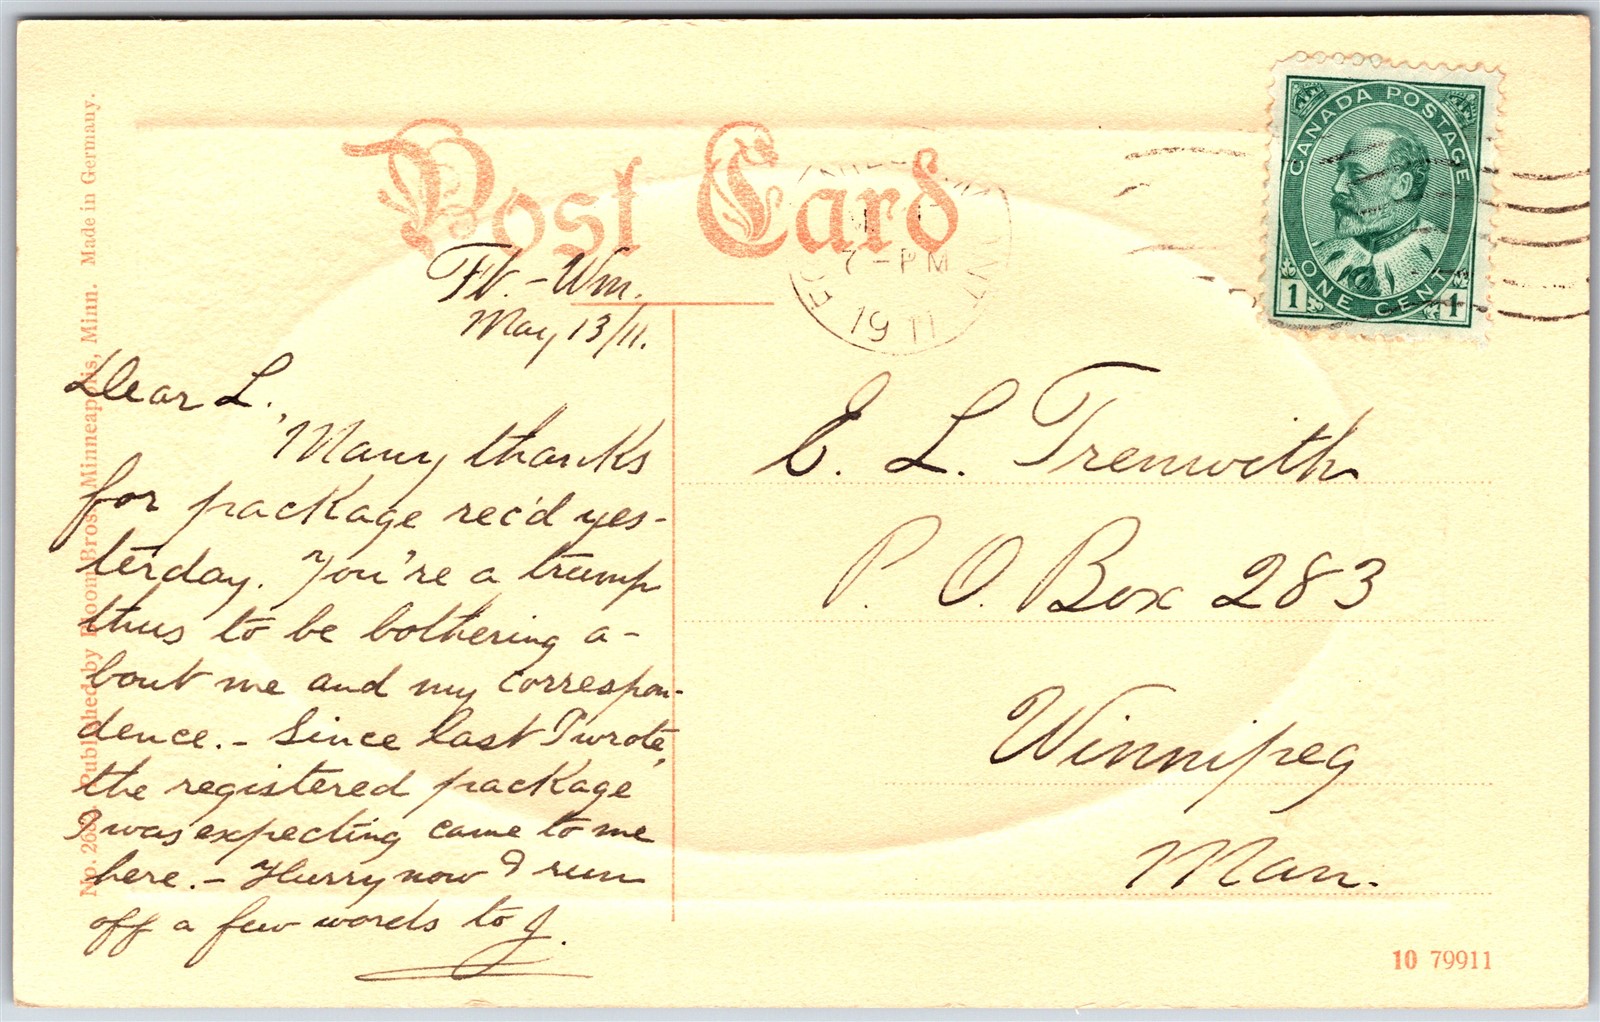 Post Card
CANADA POSTAGE
ONE CENT
1 1
7-PM
1911
ONT
Ft.-Wm.
May 13/11.
Dear L.,
Many thanks
for package rec'd yes-
terday. You're a trump
thus to be bothering a-
bout me and my correspon-
dence.- Since last I wrote,
the registered package
I was expecting came to me
here.- Hurry now & run
off a few words to J.
E. L. Trenwith
P. O. Box 283
Winnipeg
Man.
No. 268 Published by Bloom Bros. Minneapolis, Minn. Made in Germany.
10 79911